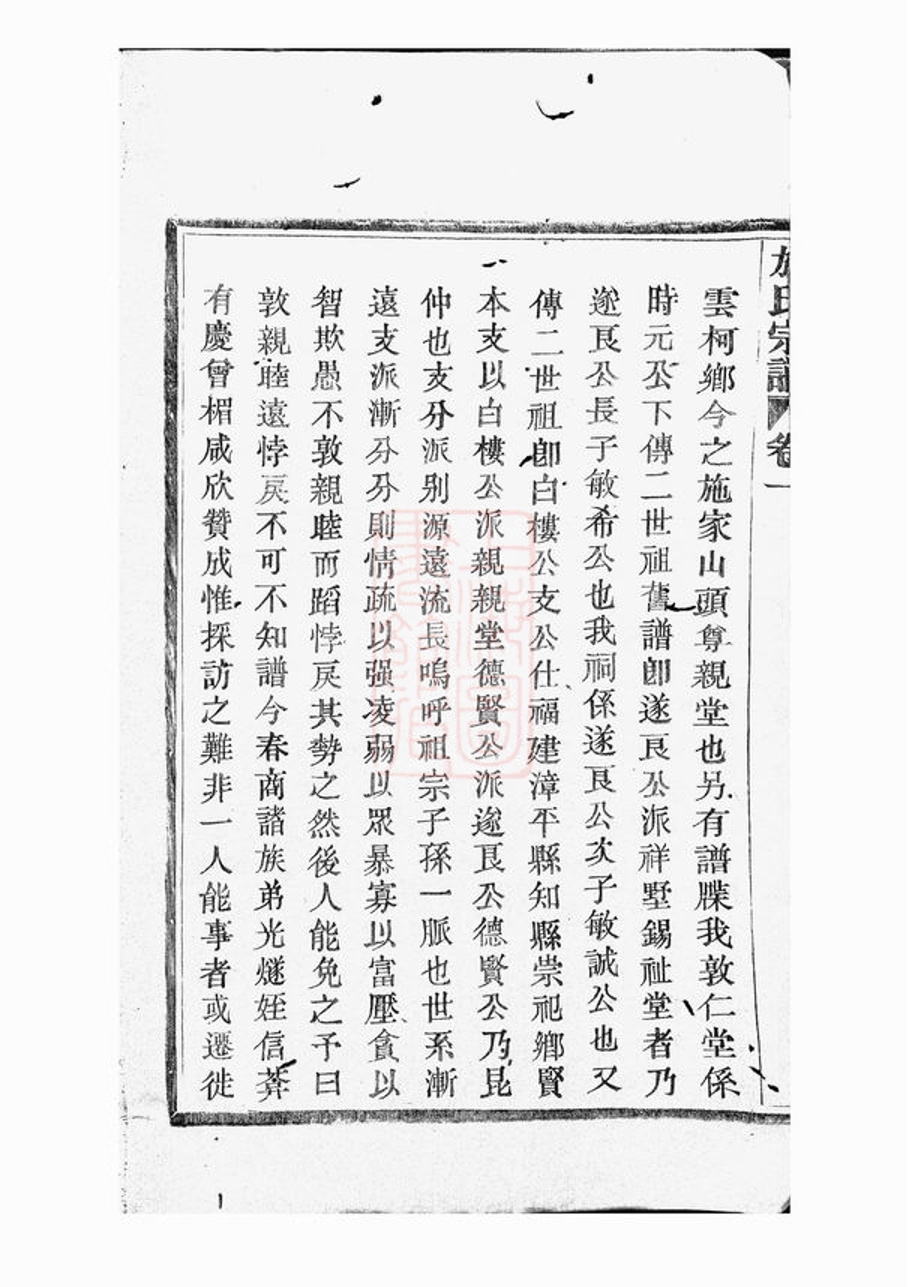 施氏宗譜 卷一
雲柯鄉今之施家山頭尊親堂也另有譜牒我敦仁堂係
時元公下傳二世祖舊譜卽遂良公派祥墅錫祉堂者乃
遂良公長子敏希公也我祠係遂良公次子敏誠公也又
傳二世祖卽白樓公支公仕福建漳平縣知縣崇祀鄉賢
本支以白樓公派親親堂德賢公派遂良公德賢公乃昆
仲也支分派別源遠流長嗚呼祖宗子孫一脈也世系漸
遠支派漸分分則情疏以强凌弱以眾暴寡以富壓貪以
智欺愚不敦親睦而蹈悖戾其勢之然後人能免之予曰
敦親睦遠悖戾不可不知譜今春商諸族弟光燧姪信葊
有慶曾楣咸欣贊成惟採訪之難非一人能事者或遷徙